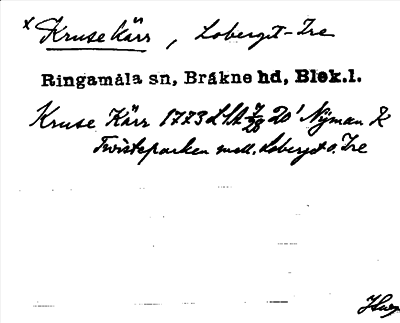 x Kruse kärr, Loberget-Ire
Ringamåla sn, Bräkne hd, Blek.l.
Kruse Kärr 1773 LSA 7/28 20' Nyman K
Twisteparken mell. Loberget o. Ire